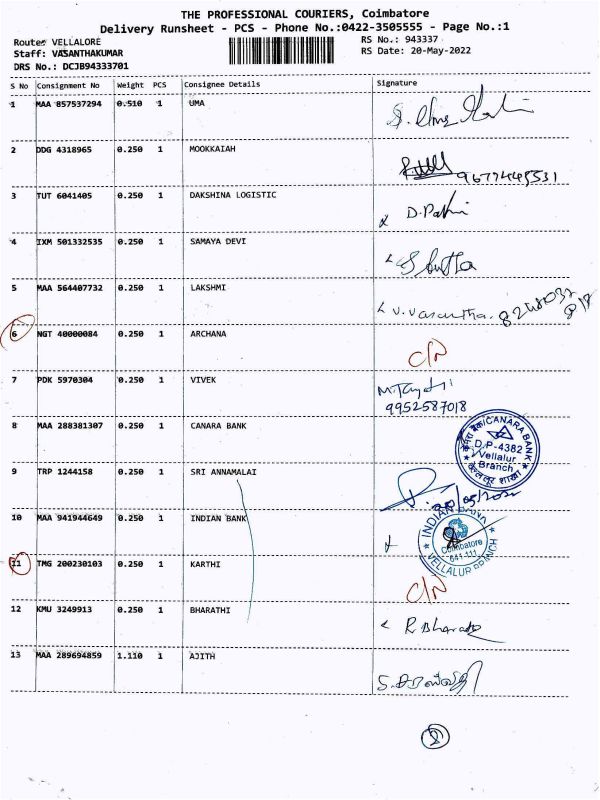 THE PROFESSIONAL COURIERS, Coimbatore
Delivery Runsheet - PCS - Phone No.:0422-3505555 - Page No.:1
Route: VELLALORE RS No.: 943337
Staff: VASANTHAKUMAR RS Date: 20-May-2022
DRS No.: DCJB94333701
S No Consignment No Weight PCS Consignee Details Signature
1 MAA 857537294 0.510 1 UMA
2 DDG 4318965 0.250 1 MOOKKAIAH
9677449531
3 TUT 6041405 0.250 1 DAKSHINA LOGISTIC
4 IXM 501332535 0.250 1 SAMAYA DEVI
5 MAA 564407732 0.250 1 LAKSHMI
V. Vasantha.
6 NGT 40000084 0.250 1 ARCHANA
C/N
7 PDK 5970304 0.250 1 VIVEK
9952587018
8 MAA 288381307 0.250 1 CANARA BANK
केनरा बैंक/CANARA BANK
D.P-4382
Vellalur
Branch
वेल्लूर शाखा
9 TRP 1244158 0.250 1 SRI ANNAMALAI
20/05/2022
10 MAA 941944649 0.250 1 INDIAN BANK
INDIAN BANK
Coimbatore
641-111
VELLALUR BRANCH
11 TMG 200230103 0.250 1 KARTHI
C/N
12 KMU 3249913 0.250 1 BHARATHI
R. Bharathi
13 MAA 289694859 1.110 1 AJITH
2